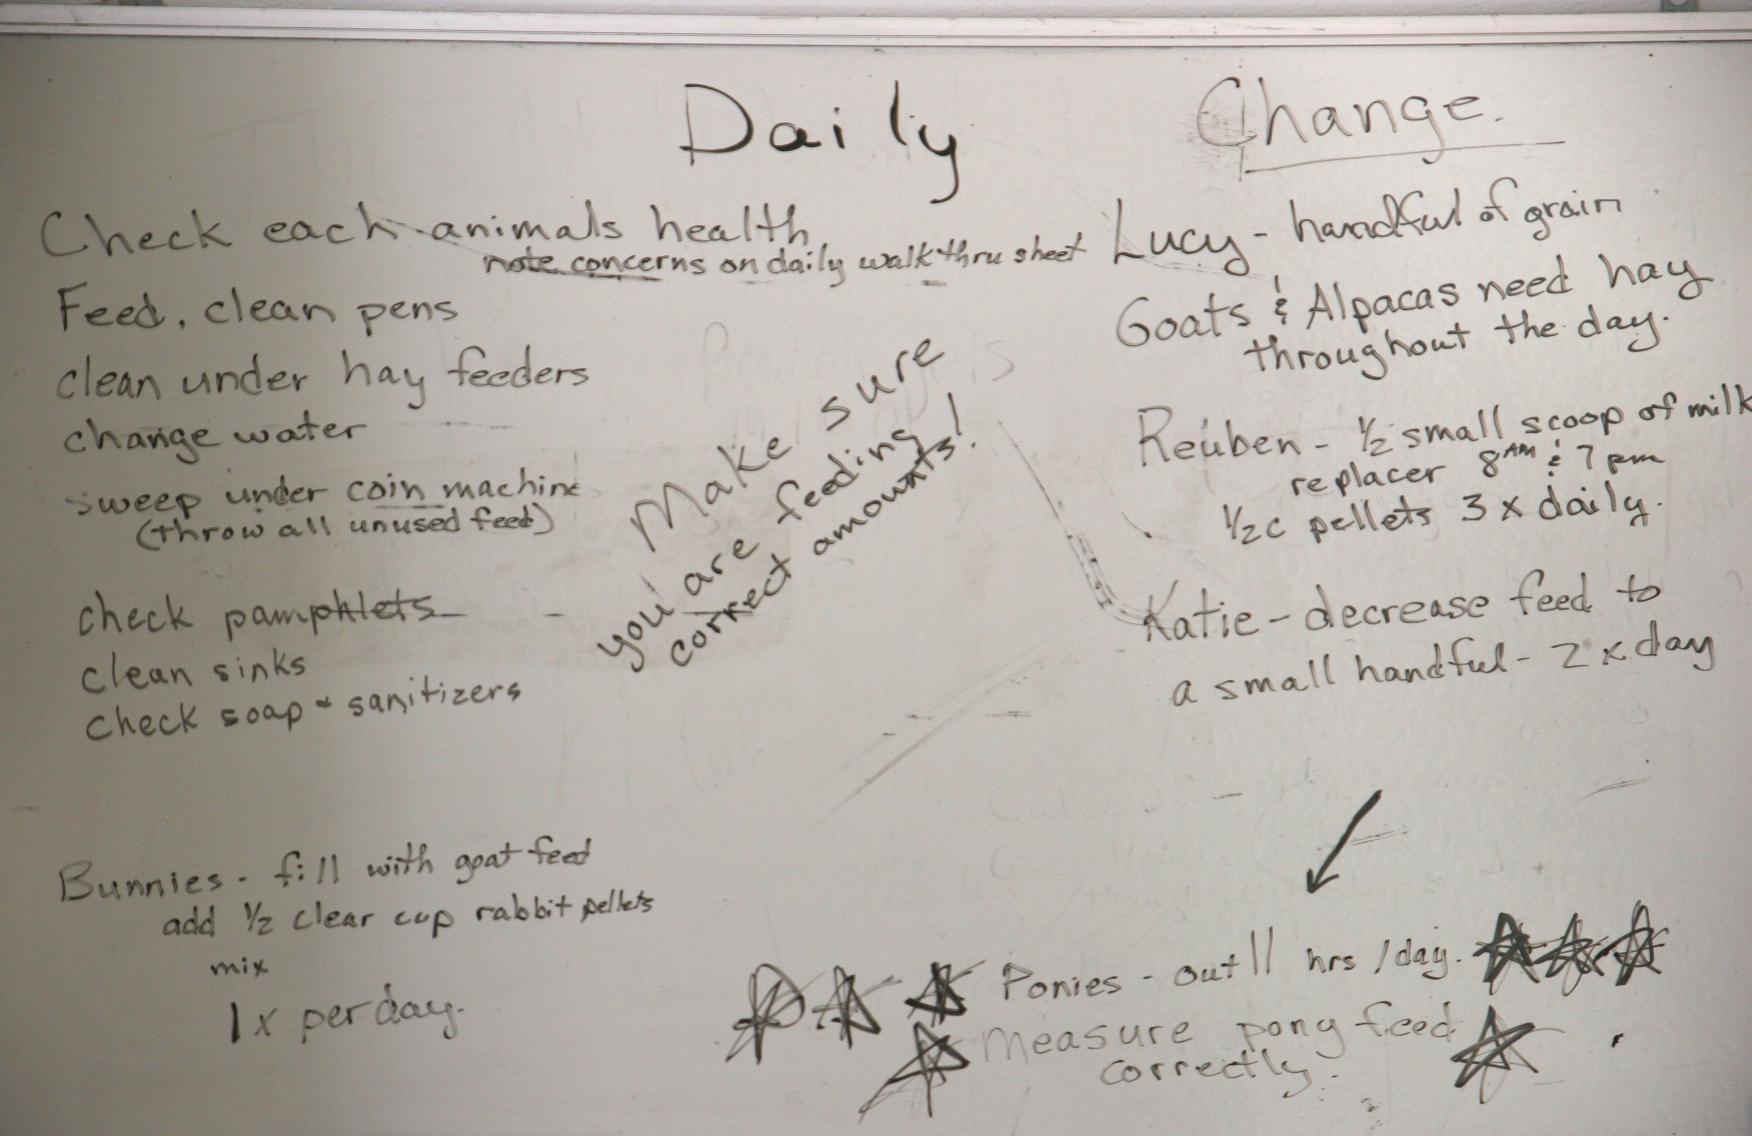 Daily
Check each animals health
note concerns on daily walk thru sheet
Feed, clean pens
clean under hay feeders
change water
sweep under coin machine
(throw all unused feed)
check pamphlets
clean sinks
check soap + sanitizers
Make sure
you are feeding
correct amounts!
Bunnies - fill with goat feed
add 1/2 clear cup rabbit pellets
mix
1x per day.
Change.
Lucy - handful of grain
Goats & Alpacas need hay
throughout the day.
Reuben - 1/2 small scoop of milk
replacer 8AM & 7pm
1/2c pellets 3x daily.
Katie - decrease feed to
a small handful - 2x day
Ponies - out 11 hrs/day.
Measure pony feed
correctly.